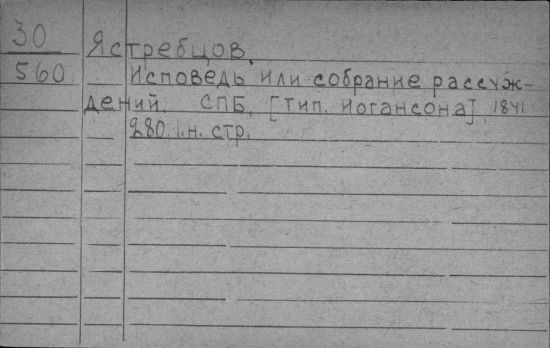 30
Ястребцов.
560 Исповедь или собрание рассуж-
дений. СПБ, [Тип. Иогансона], 1841
280. н. стр.